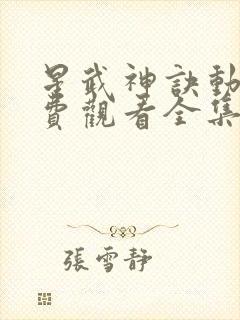 星武神訣動
費觀看全集
張雪靜